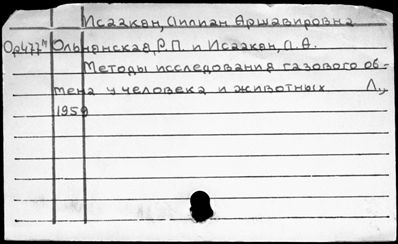 Исаакян, Лилиан Аршавировна
Ор477м Ольнянская, Р.П. и Исаакян, Л.А.
Методы исследования газового об-
мена у человека и животных Л.,
1959